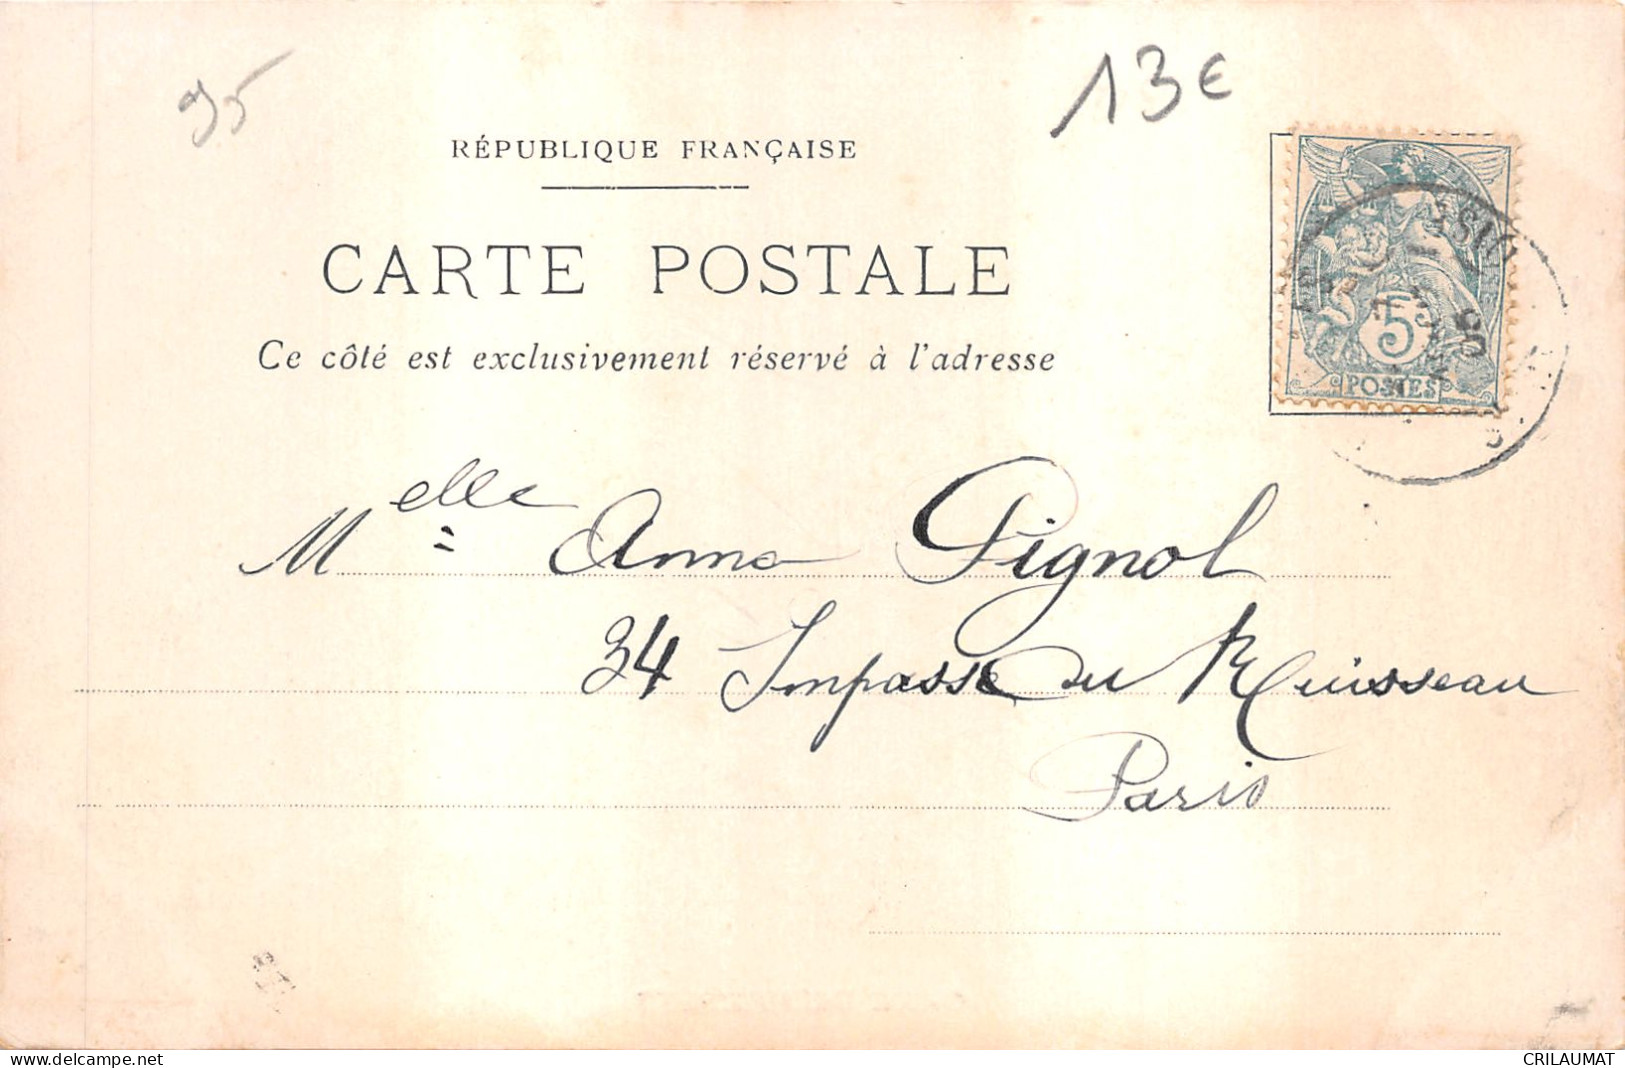 95
13€
RÉPUBLIQUE FRANÇAISE
CARTE POSTALE
Ce côté est exclusivement réservé à l'adresse
5
POSTES
Melle Anna Pignol
34 Impasse du Ruisseau
Paris
delcampe.net
CRILAUMAT